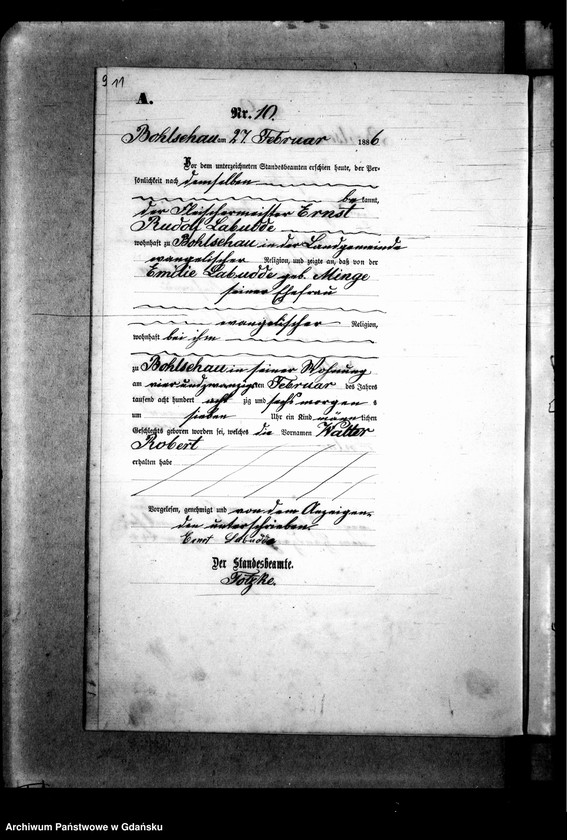 9 11
A.
Nr. 10.
Bohlschau am 27. Februar 1886
Vor dem unterzeichneten Standesbeamten erschien heute, der Per-
sönlichkeit nach demselben
be kannt,
der Fleischermeister Ernst
Rudolf Labudde
wohnhaft zu Bohlschau in der Landgemeinde
evangelischer Religion, und zeigte an, daß von der
Emilie Labudde geb. Minge
seiner Ehefrau
evangelischer Religion,
wohnhaft bei ihm
zu Bohlschau in seiner Wohnung
am vierundzwanzigsten Februar des Jahres
tausend acht hundert acht zig und sechs morgens
um sieben Uhr ein Kind männlichen
Geschlechts geboren worden sei, welches die Vornamen Walter
Robert
erhalten habe
Vorgelesen, genehmigt und von dem Anzeigen-
den unterschrieben
Ernst Labudde
Der Standesbeamte.
Archiwum Państwowe w Gdańsku